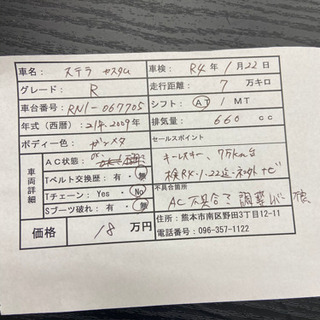 車名: ステラ カスタム 車検: R4年 1月22日
グレード: R 走行距離: 7 万キロ
車台番号: RN1-067705 シフト: AT / MT
年式（西暦）: 21年.2009年 排気量: 660 cc
ボディー色: ガンメタ セールスポイント
車両詳細
AC状態:
キーレスキー、7万km台
Tベルト交換歴: 有・無
検R4.1.22迄 ナビ
Tチェーン: Yes No
不具合箇所
Sブーツ破れ: 有・無
AC不具合
価格 18 万円
住所: 熊本市南区野田3丁目12-11
電話番号: 096-357-1122